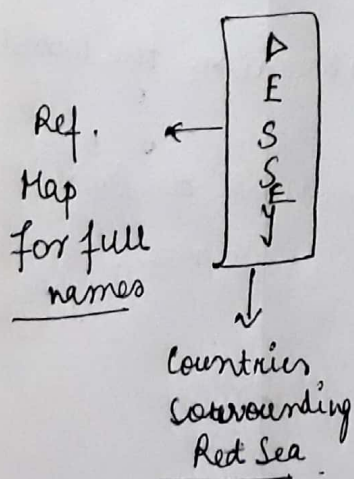 D
E
S
S
E
Y
Ref.
Map
for full
names
Countries
surrounding
Red Sea